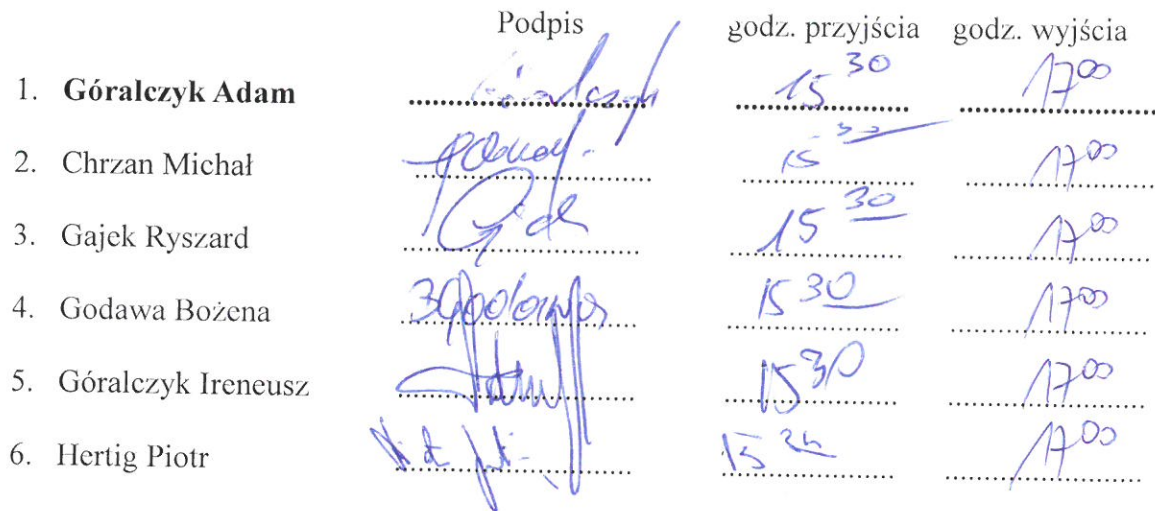 Podpis godz. przyjścia godz. wyjścia
1. Góralczyk Adam 15 30 17 00
2. Chrzan Michał 15 30 17 00
3. Gajek Ryszard 15 30 17 00
4. Godawa Bożena BGodawa 15 30 17 00
5. Góralczyk Ireneusz 15 30 17 00
6. Hertig Piotr 15 17 00